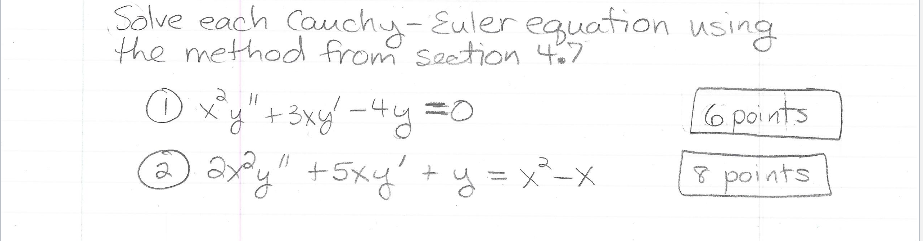 Solve each Cauchy-Euler equation using
the method from section 4.7
① x²y" + 3xy' - 4y = 0 6 points
② 2x²y" + 5xy' + y = x² - x 8 points